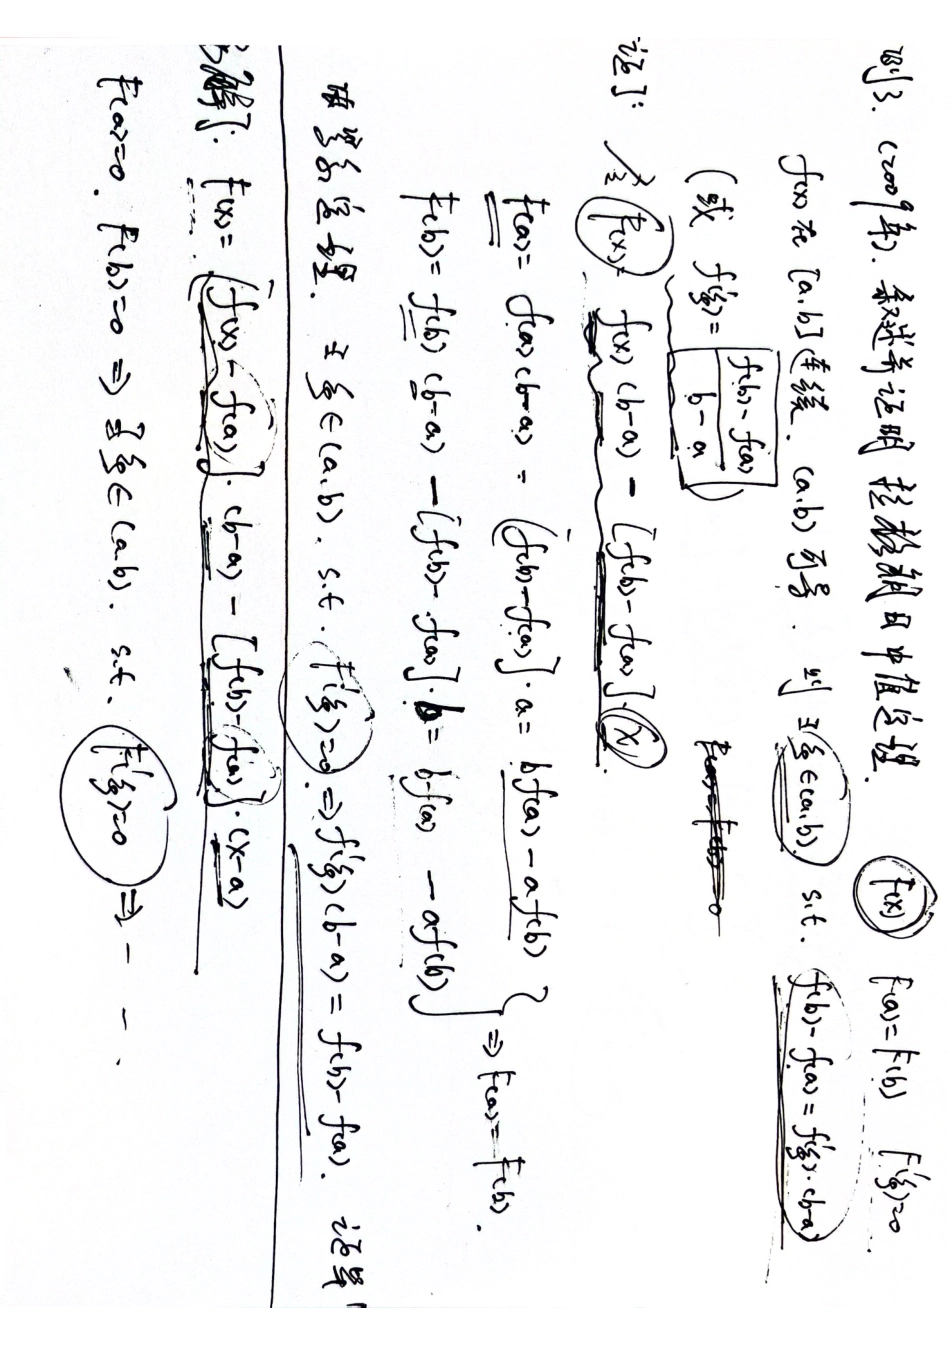 例3. (2009年). 叙述并证明 拉格朗日中值定理. F(x) F(a)=F(b) F'(ξ)=0
f(x)在[a.b]连续. (a.b)可导. 则 ∃ξ∈(a.b). s.t. f(b)-f(a)=f'(ξ)·(b-a)
(或 f'(ξ)= \frac{f(b)-f(a)}{b-a})
证]: 令 F(x)= f(x)(b-a) - [f(b)-f(a)]·x.
F(a)= f(a)(b-a) - [f(b)-f(a)]·a = bf(a)-af(b)
F(b)= f(b)(b-a) - [f(b)-f(a)]·b = bf(a) - af(b) } ⇒ F(a)=F(b).
由罗尔定理. ∃ξ∈(a.b). s.t. F'(ξ)=0. ⇒ f'(ξ)(b-a)=f(b)-f(a). 证毕
解]: F(x)= [f(x)-f(a)]·(b-a) - [f(b)-f(a)]·(x-a)
F(a)=0. F(b)=0 ⇒ ∃ξ∈(a.b). s.t. F'(ξ)=0 ⇒ - - .